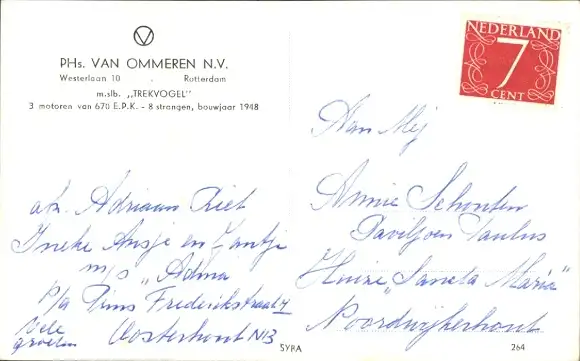 PHs. VAN OMMEREN N.V.
Westerlaan 10 - Rotterdam
m.slb. „TREKVOGEL"
3 motoren van 670 E.P.K. - 8 strangen, bouwjaar 1948
NEDERLAND
7
CENT
Aan Mej
Annie Schouten
Paviljoen Paulus
Huize „Sancta Maria"
Noordwijkerhout
afz. Adriaan Riet
Ineke Ansje en Jantje
m/s „Adma
P/a Prins Frederikstraat
Oosterhout NB
Vele
groeten
SYRA
264